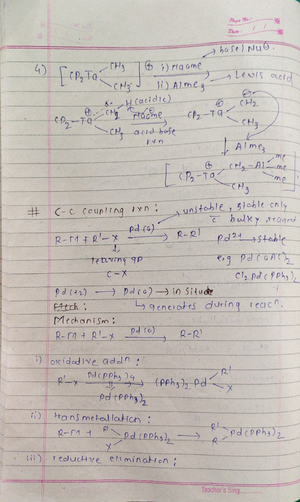 base/NuΘ
4) [CP₂Ta CH₃ CH₃]⊕ i) NaOMe
ii) AlMe₃ → Lewis acid
CP₂-Ta⊕ CH₂ H (acidic) CH₃
MeOΘ
acid base rxn
CP₂-Ta⊕ CH₂ CH₃
↓ AlMe₃
[CP₂-Ta⊕ CH₂-Al Me Me Me CH₃]
# C-C coupling rxn: → unstable, stable only
c̄ bulky
R-M + R'-X Pd(0) → R-R' Pd²⁺ → stable
↓
leaving gp
C-X
eg Pd(OAc)₂
Cl₂Pd(PPh₃)₂
Pd(+2) → Pd(0) → in situ
↳ generates during reacn.
Mechanism:
R-M + R'-X Pd(0) → R-R'
i) oxidative addn:
R'-X Pd(PPh₃)₄ → (PPh₃)₂Pd R' X
⇓
Pd(PPh₃)₂
ii) transmetallation:
R-M + R' X Pd(PPh₃)₂ → R' R Pd(PPh₃)₂
iii) reductive elimination:
Teacher's Sing.